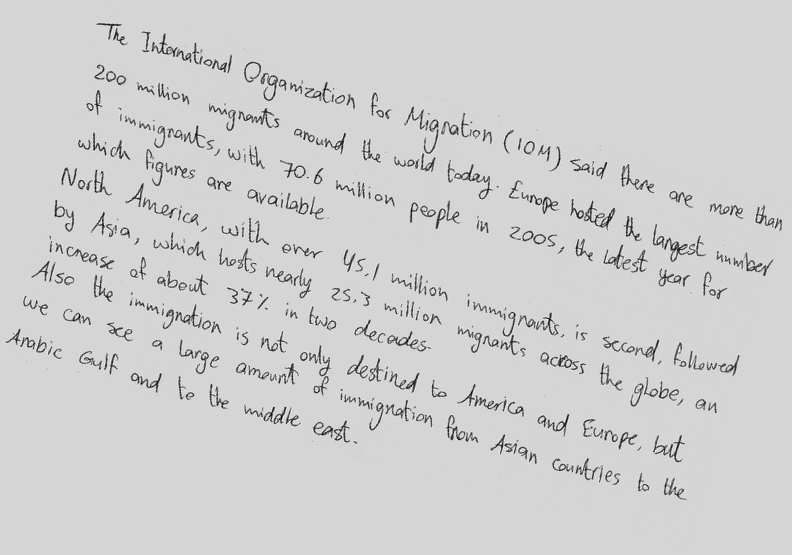 The International Organization for Migration (IOM) said there are more than
200 million migrants around the world today. Europe hosted the largest number
of immigrants, with 70.6 million people in 2005, the latest year for
which figures are available.
North America, with over 45.1 million immigrants, is second, followed
by Asia, which hosts nearly 25.3 million migrants across the globe, an
increase of about 37% in two decades.
Also the immignation is not only destined to America and Europe, but
we can see a large amount of immignation from Asian countries to the
Arabic Gulf and to the middle east.